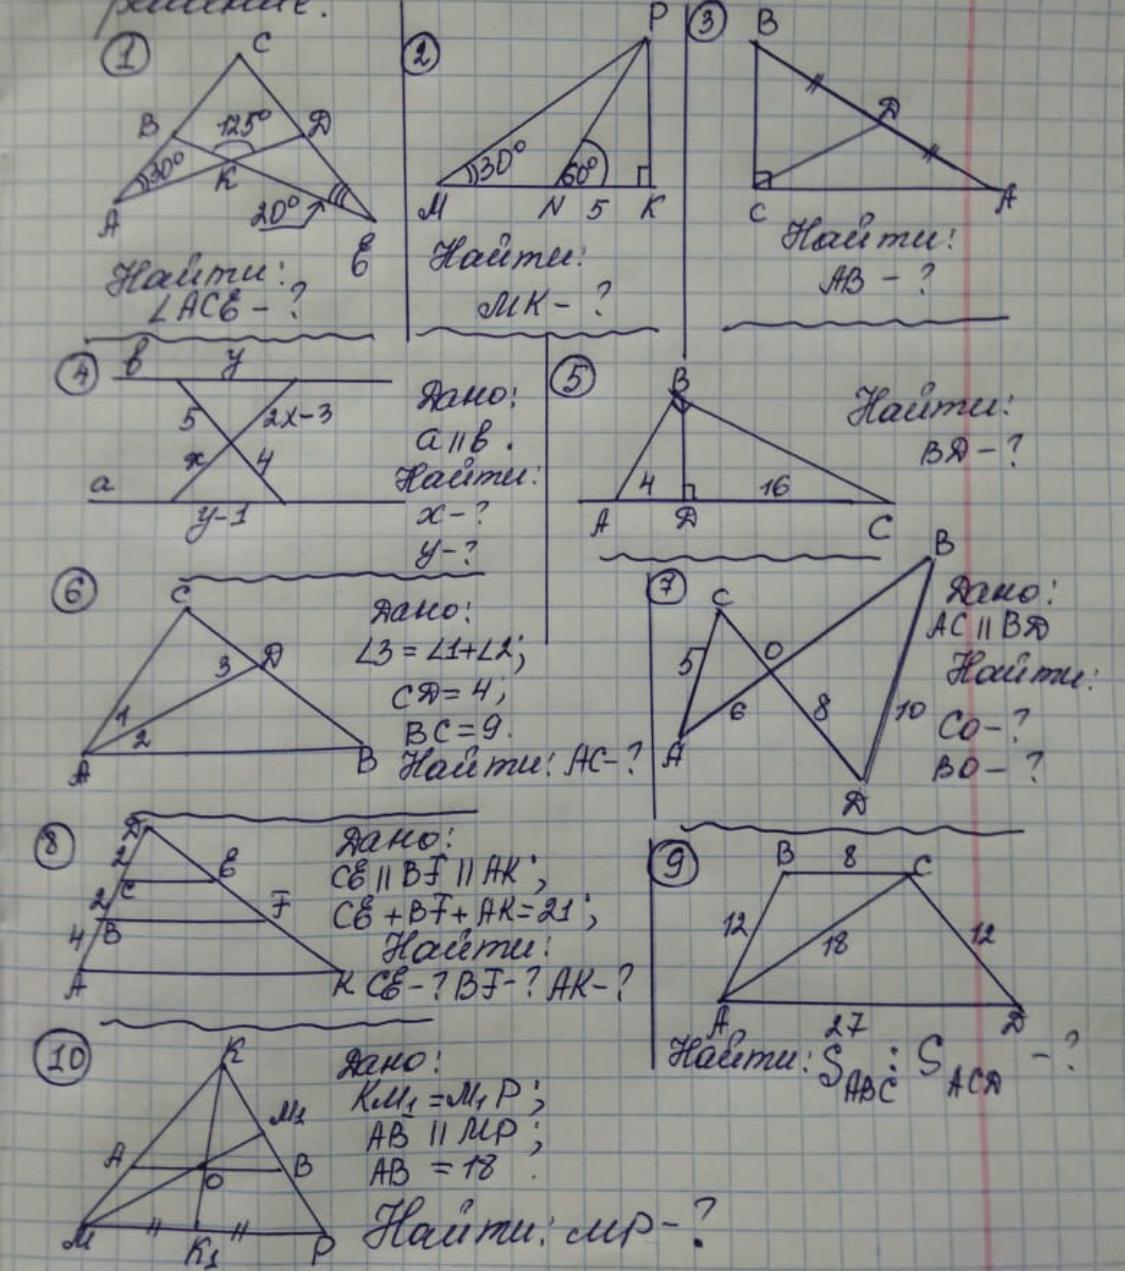 решение.
1
C
B
125°
D
30°
K
A
20°
E
Найти:
∠ACE - ?
2
P
30°
60°
M
N
5
K
Найти:
MK - ?
3
B
D
C
A
Найти:
AB - ?
4
в
y
5
2x-3
x
4
a
y-1
Дано:
a || в.
Найти:
x - ?
y - ?
5
B
4
16
A
D
C
Найти:
BD - ?
6
C
3
D
1
2
A
B
Дано:
∠3 = ∠1+∠2;
CD = 4;
BC = 9.
Найти: AC - ?
7
B
C
O
5
6
8
10
A
D
Дано:
AC || BD
Найти:
CO - ?
BO - ?
8
D
2
E
C
2
F
B
4
A
K
Дано:
CE || BF || AK;
CE + BF + AK = 21;
Найти:
CE - ? BF - ? AK - ?
9
B
8
C
12
18
12
A
27
D
Найти: S ABC : S ACD - ?
10
K
M1
A
B
O
M
K1
P
Дано:
KM1 = M1P;
AB || MP;
AB = 18.
Найти: MP - ?